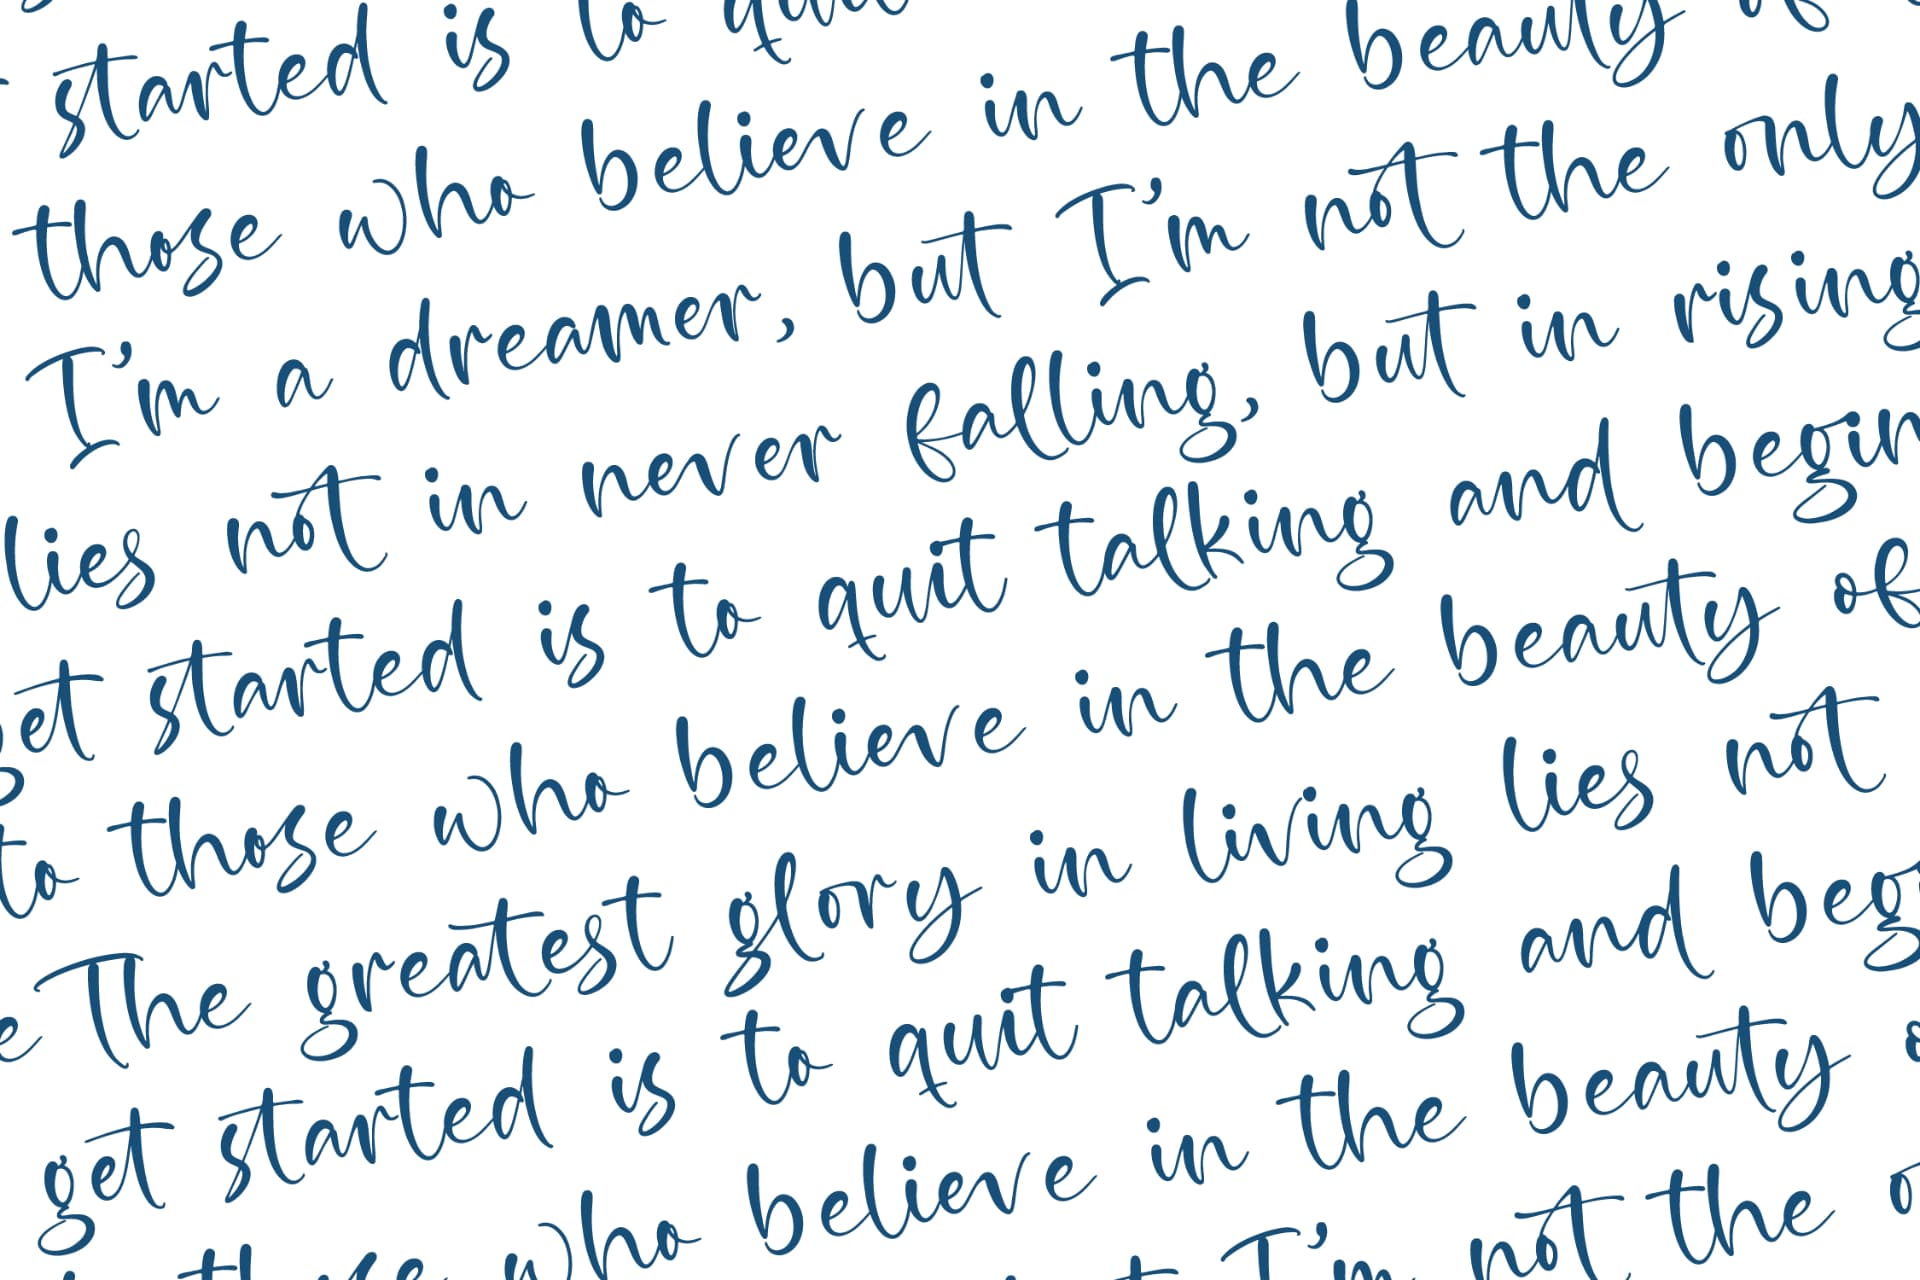 started is to
those who believe in the beauty of
I'm a dreamer, but I'm not the only
lies not in never falling, but in rising
get started is to quit talking and begin
to those who believe in the beauty of
The greatest glory in living lies not
get started is to quit talking and beg
who believe in the beauty
I'm not the